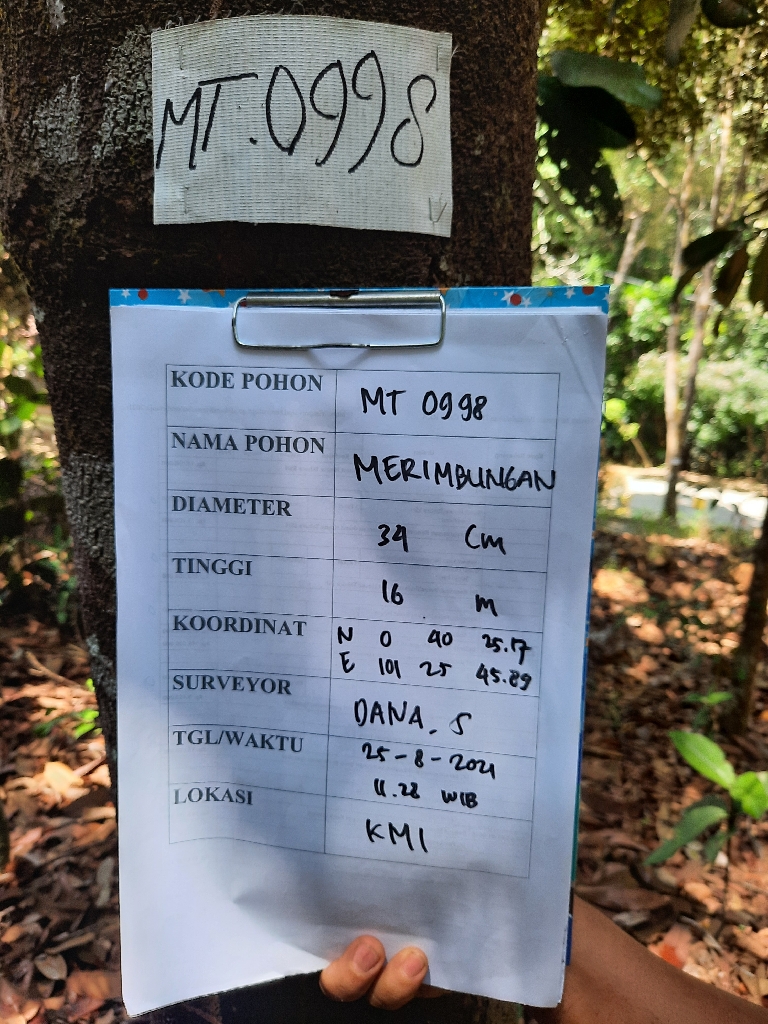 MT.0998
KODE POHON MT 0998
NAMA POHON MERIMBUNGAN
DIAMETER 34 Cm
TINGGI 16 m
KOORDINAT N 0 40 25.17
E 101 25 45.89
SURVEYOR DANA. S
TGL/WAKTU 25-8-2021
11.28 WIB
LOKASI KMI